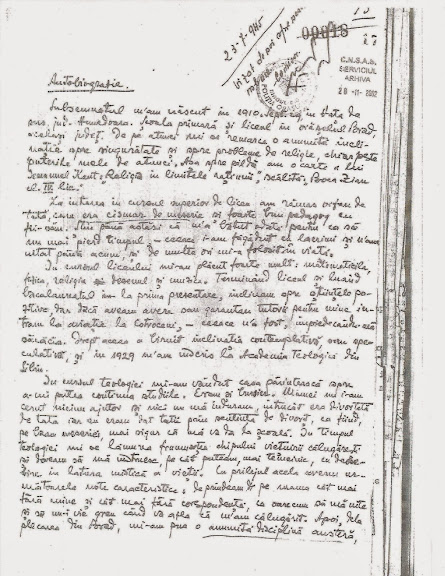 13
23-7-945
00018
C.N.S.A.S.
SERVICIUL
ARHIVA
Autobiografie.
Subsemnatul m'am născut în 1910. Sept. 29 în Vața de
sus, jud. Hunedoara. Școala primară și liceul în orășelul Brad,
același județ. De pe atunci mi se remarca o anumită încli-
nație spre singurătate și spre probleme de religie, chiar peste
puterile mele de atunci. Am spre pildă am o carte a lui
Immanuel Kant: „Religia în limitele rațiunii”, iscălită: Boca Zian
cl. IV lic.
La intarea în cursul superior de liceu am rămas orfan de
tată, care era cismar de meserie și foarte bun pedagog cu
feciorii. Mai până astăzi că m'a bătut odată pentru ca să
nu mai pierd timpul – ceeace i-am făgăduit cu lacrimi și n'am
uitat până acum, și de multe ori mi-a folosit în viață.
În cursul liceului mi-au plăcut foarte mult: matematicile,
fizica, religia și desenul și muzica. Terminând liceul și luând
bacalaureatul din la prima prezentare, înclinam spre științele po-
zitive, dar dacă aveam avere sau garantau tutorii pentru mine in-
tram la aviație la Cotroceni, – ceeace n'a fost, împiedecându-mă
sărăcia. Drept aceea a biruit înclinația contemplativă, sau spe-
culativă, și în 1929 m'am înscris la Academia Teologică din
Sibiu.
În cursul teologiei mi-am vândut casa părintească spre
a-mi putea continua studiile. Eram și bursier. Mamei nu i-am
cerut niciun ajutor și nici nu mă înduram, întrucât era divorțată
de tata iar eu eram dat tatii prin sentința de divorț, ca fiind,
pe baza meseriei mai sigur că mă va da la școală. În timpul
teologiei mi se lămurea frumusețea chipului viețuirii călugărești
și doream să mă îndrumez, pe cât puteam, mai temeinic, cu deose-
bire în latura mistică a vieții. Cu prilejul acela aveam ur-
mătoarele note caracteristice: deprindeam pe mama cât mai
fără mine și cât mai fără corespondență, ca oarecum să mă uite
și să nu-i vie greu când va afla că m'am călugărit. Apoi, dela
plecarea din Brad, mi-am pus o anumită disciplină austeră,